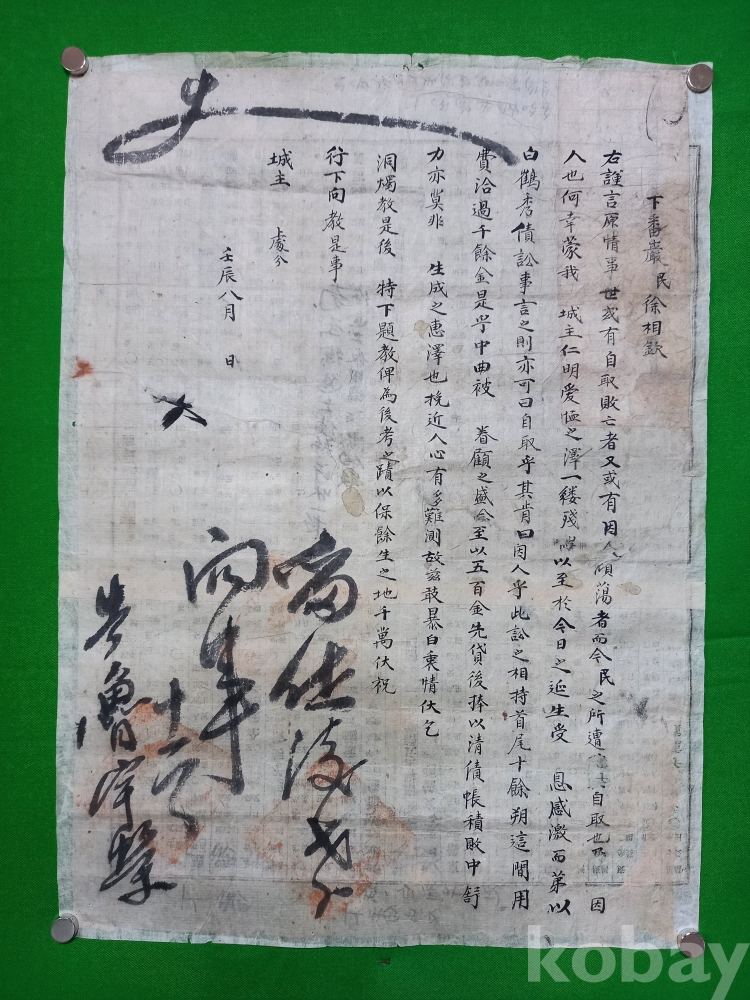 下番巖民徐相欽
右謹言原情事世或有自取敗亡者又或有因人傾蕩者而今民之所遭自取也因
人也何幸蒙我 城主仁明愛恤之澤一縷殘以至於今日之延生受 恩感激而第以
白鶴秀債訟事言之則亦可曰自取乎其肯曰因人乎此訟之相持首尾十餘朔這間用
費洽過千餘金是乎中曲被 眷顧之盛念至以五百金先貸後捧以清債帳積敗中舒
力亦莫非 生成之惠澤也挽近人心有多難測故玆敢暴白衷情伏乞
洞燭敎是後 特下題敎俾為後考之蹟以保餘生之地千萬伏祝
行下向敎是事
城主 處分
壬辰八月 日
向事
十二日
kobay